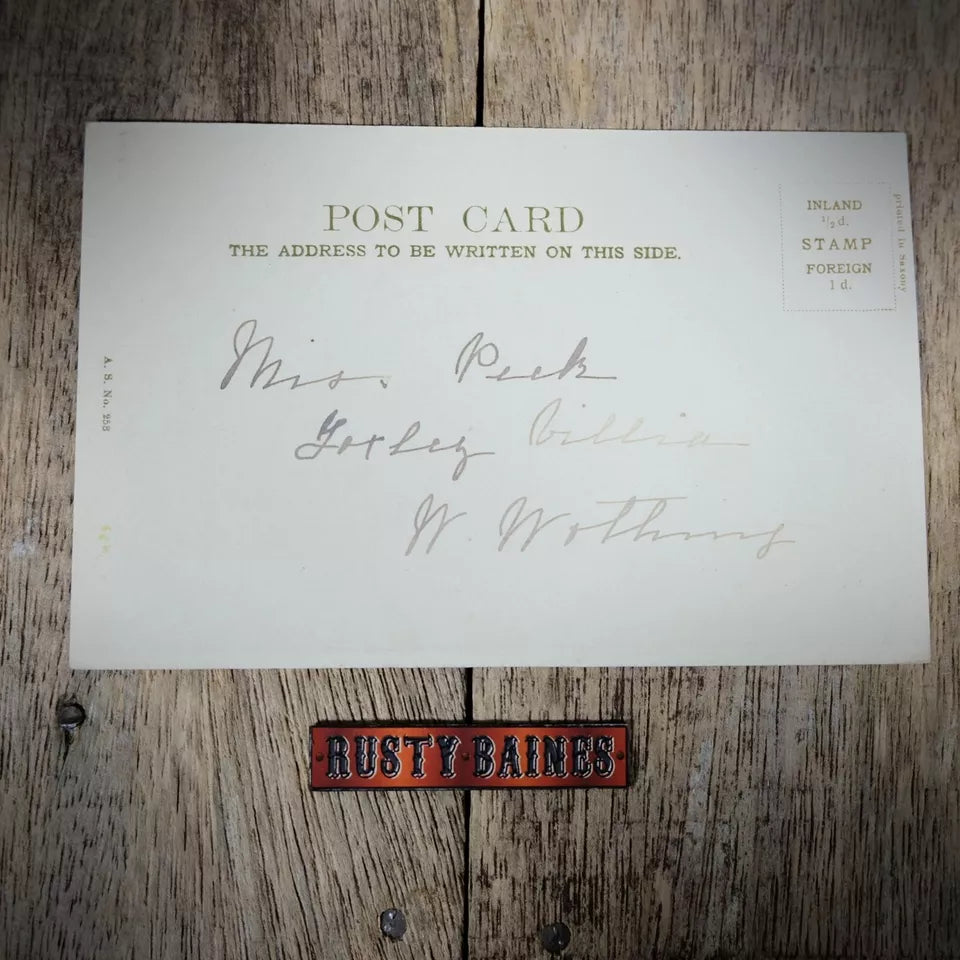 POST CARD
THE ADDRESS TO BE WRITTEN ON THIS SIDE.
INLAND
1/2 d.
STAMP
FOREIGN
1 d.
printed in Saxony
A. S. No. 258
Miss. Peek
Foxley Villia
W. Wothing
RUSTY BAINES